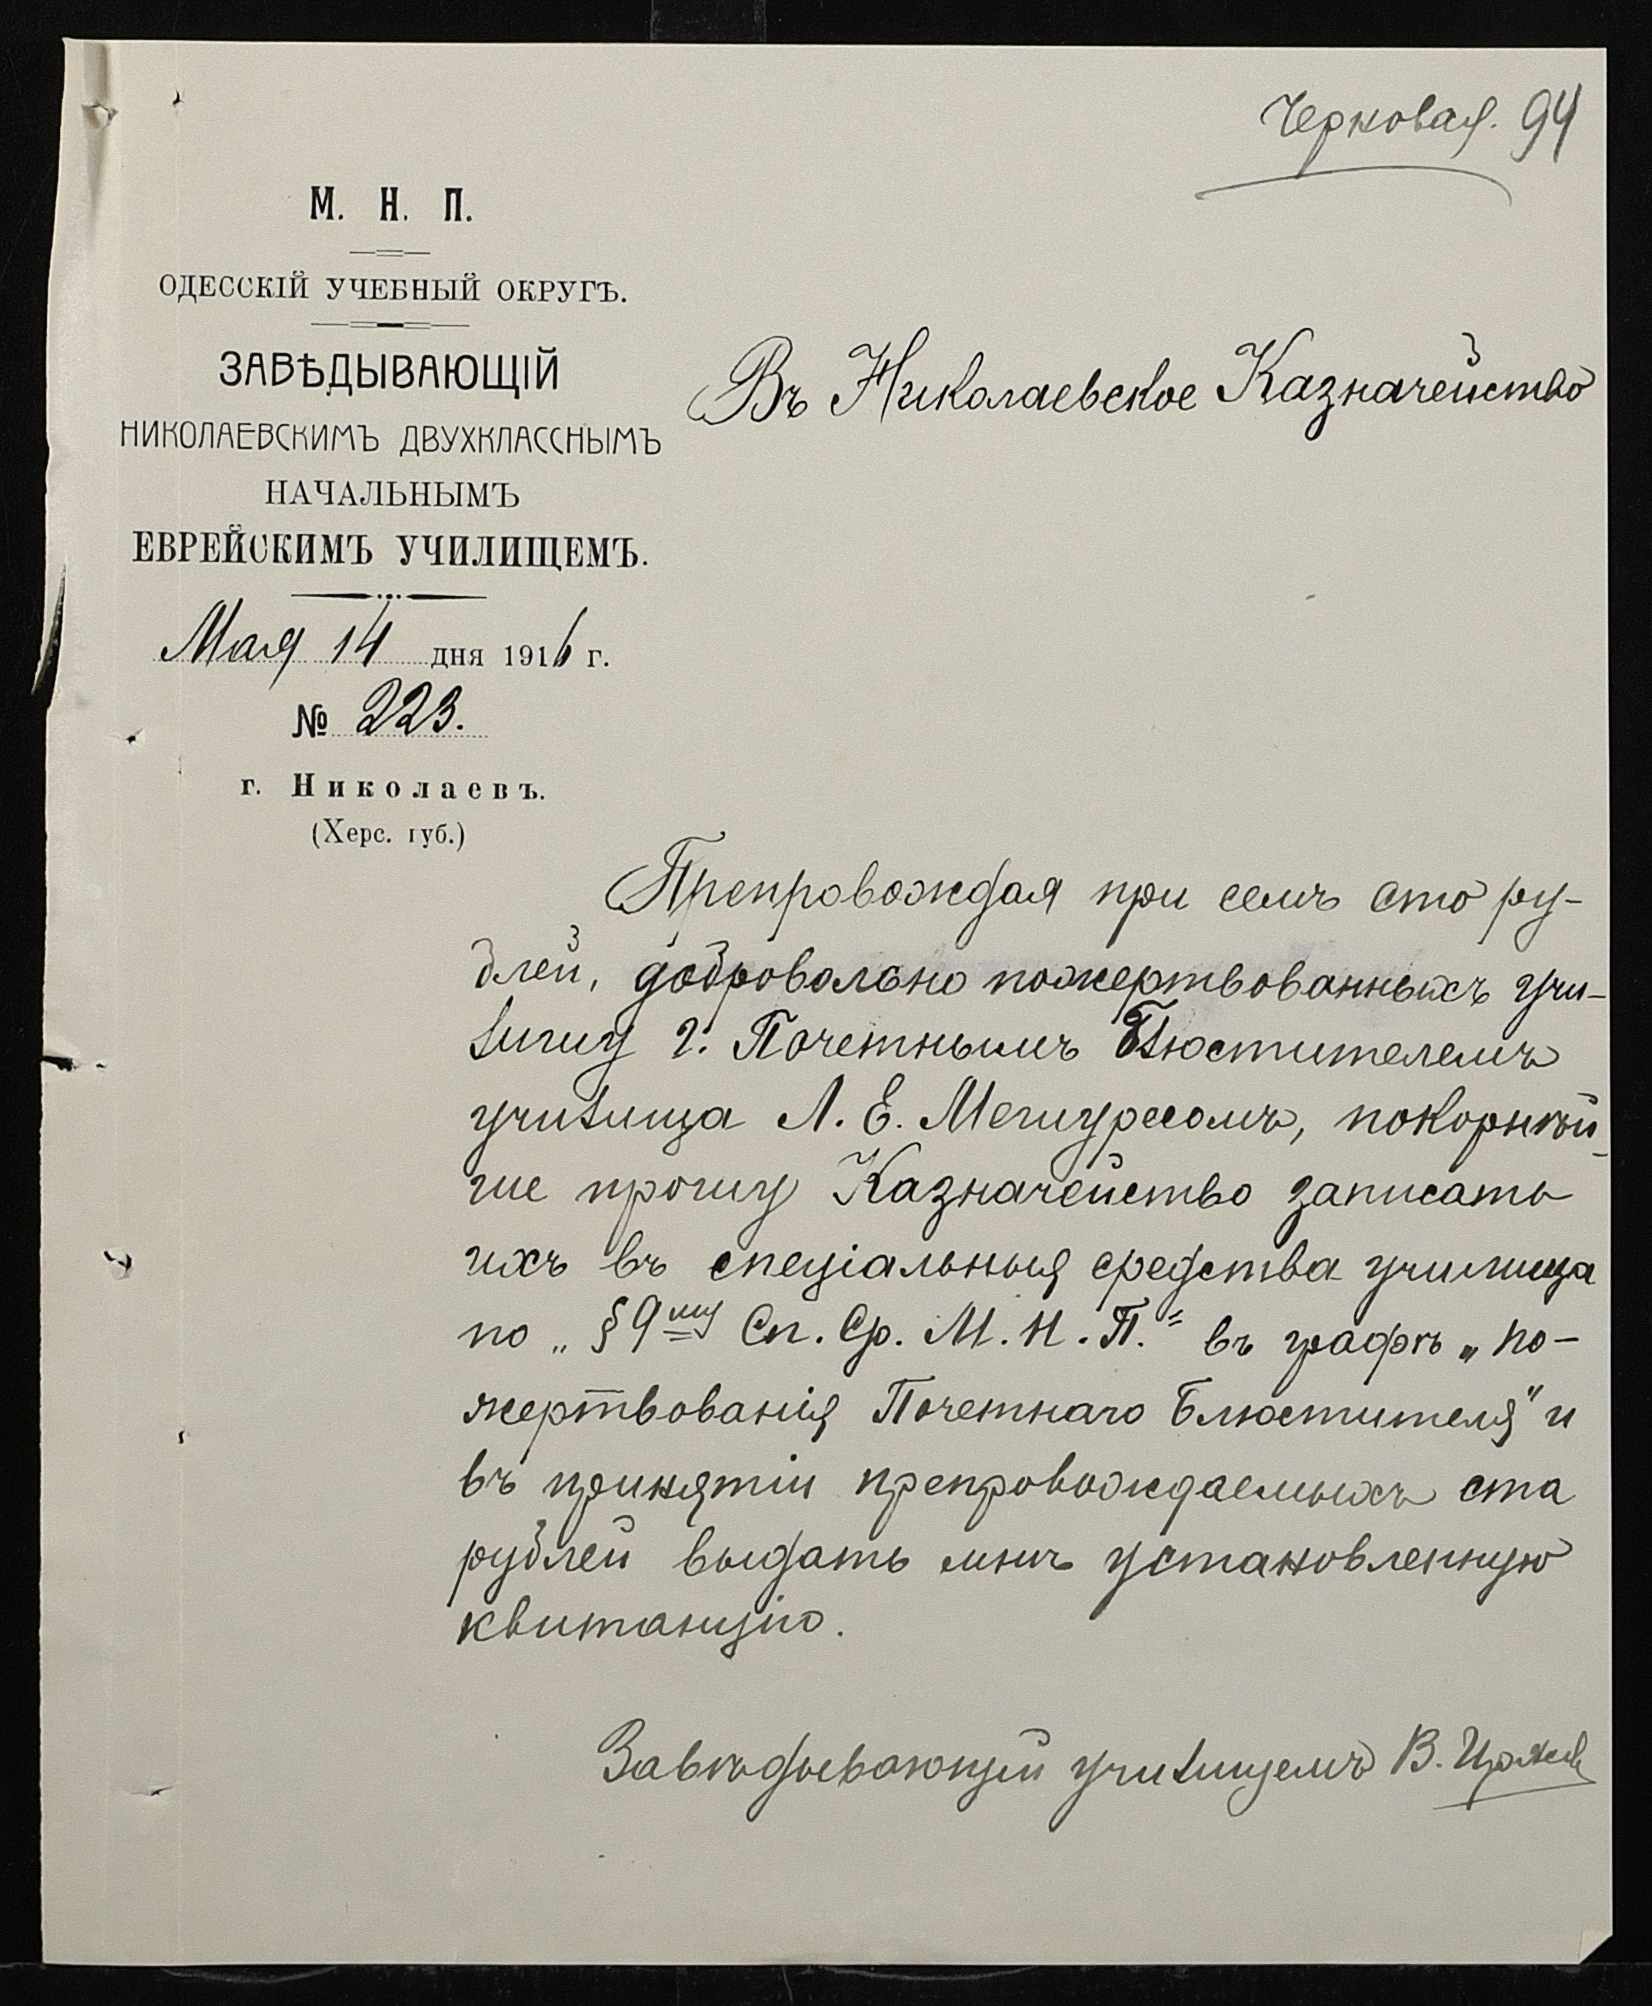 Черновая. 94
М. Н. П.
ОДЕССКІЙ УЧЕБНЫЙ ОКРУГЪ.
ЗАВѢДЫВАЮЩІЙ
НИКОЛАЕВСКИМЪ ДВУХКЛАССНЫМЪ
НАЧАЛЬНЫМЪ
ЕВРЕЙСКИМЪ УЧИЛИЩЕМЪ.
Мая 14 дня 1916 г.
№ 223.
г. Николаевъ.
(Херс. губ.)
Въ Николаевское Казначейство
Препровождая при семъ сто ру-
блей, добровольно пожертвованныхъ учи-
лищу г. Почетнымъ Блюстителемъ
училища Л. Е. , покорнѣй-
ше прошу Казначейство записать
ихъ въ спеціальныя средства училища
по „§ 9му Сп. Ср. М. Н. П.“ въ графѣ „по-
жертвованія Почетнаго Блюстителя“ и
въ принятіи препровождаемыхъ ста
рублей выдать мнѣ установленную
квитанцію.
Завѣдывающій училищемъ В.